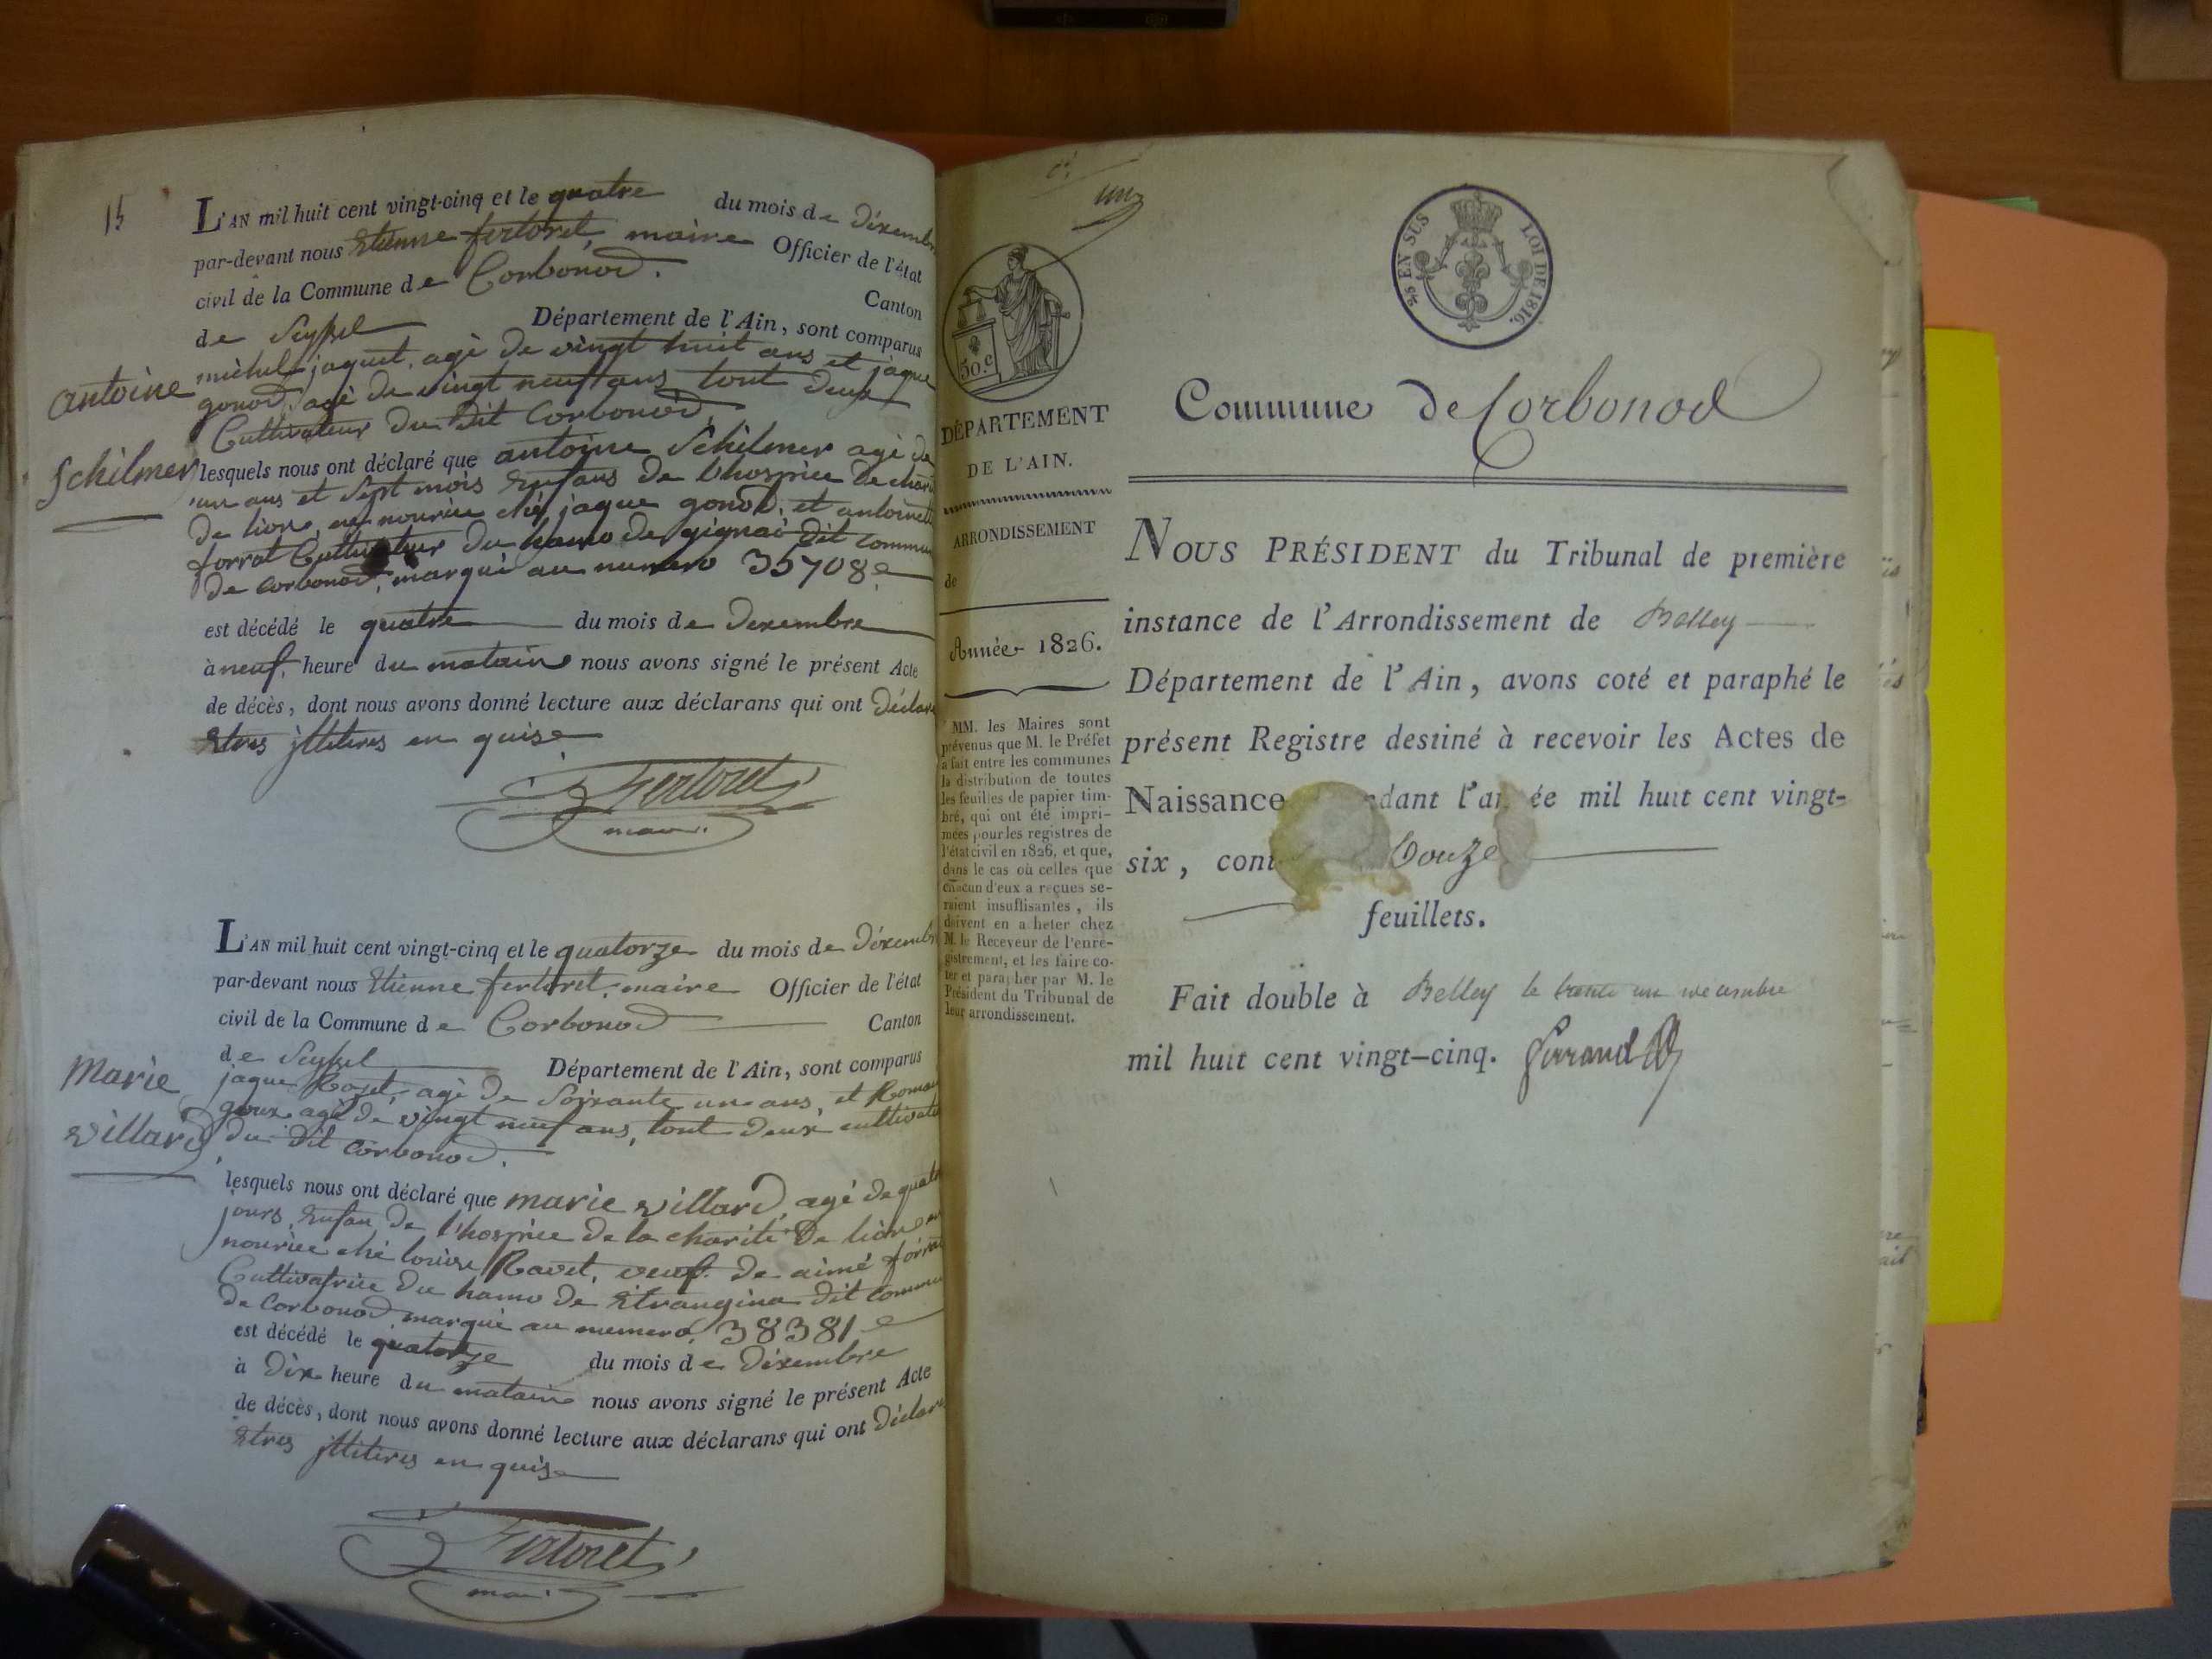 15
L'AN mil huit cent vingt-cinq et le quatre du mois de Déxembre
par-devant nous Etienne fertoret, maire Officier de l'état
civil de la Commune de Corbonod. Canton
de Seyssel Département de l'Ain, sont comparus
michel jaquet, agé de vingt huit ans et jàque
gonod, agé de vingt neuf ans tout deux
Cultivateur du dit Corbonod,
antoine
Schilmer
lesquels nous ont déclaré que antoine Schilmer agé de
un ans et Sept mois Enfans de l'hospice de
de lion, en nourice ché jaque gonod, et
forrat Cultivateur du hamo de gignai dit
de Corbonod, marqué au numero 35708
est décédé le quatre du mois de Dexembre
à neuf heure du matain nous avons signé le présent Acte
de décès, dont nous avons donné lecture aux déclarans qui ont Déclare
Etres jllitires en quise
Fertoret
maire
L'AN mil huit cent vingt-cinq et le quatorze du mois de Déxembre
par-devant nous Etienne fertoret, maire Officier de l'état
civil de la Commune de Corbonod Canton
de Seyssel Département de l'Ain, sont comparus
jaque Rozet, agé de Soixante un ans, et
goux agé de vingt neuf ans, tout deux
du dit Corbonod.
Marie
Villard
lesquels nous ont déclaré que marie villard, agé de
jours, Enfan de l'hospice de la charité De lion
nourice ché louise Ravet, veuf de aimé
Cultivatrice du hamo de Etrangina dit
de Corbonod, marqué au numero, 38381
est décédé le quatorze du mois de Déxembre
à Dix heure du matain nous avons signé le présent Acte
de décès, dont nous avons donné lecture aux déclarans qui ont Déclare
Etres jllitires en quise
Fertoret
un
50.c
2/5 EN SUS LOI DE 1816.
DÉPARTEMENT
DE L'AIN.
ARRONDISSEMENT
de
Année 1826.
MM. les Maires sont
prévenus que M. le Préfet
a fait entre les communes
la distribution de toutes
les feuilles de papier tim-
bré, qui ont été impri-
mées pour les registres de
l'état civil en 1826, et que,
dans le cas où celles que
chacun d'eux a reçues se-
raient insuffisantes, ils
doivent en a heter chez
M. le Receveur de l'enre-
gistrement, et les faire co-
ter et parapher par M. le
Président du Tribunal de
leur arrondissement.
Commune de Corbonod
NOUS PRÉSIDENT du Tribunal de première
instance de l'Arrondissement de Belley
Département de l'Ain, avons coté et paraphé le
présent Registre destiné à recevoir les Actes de
Naissance dant l'année mil huit cent vingt-
six, cont douze
feuillets.
Fait double à Belley le trente un décembre
mil huit cent vingt-cinq.